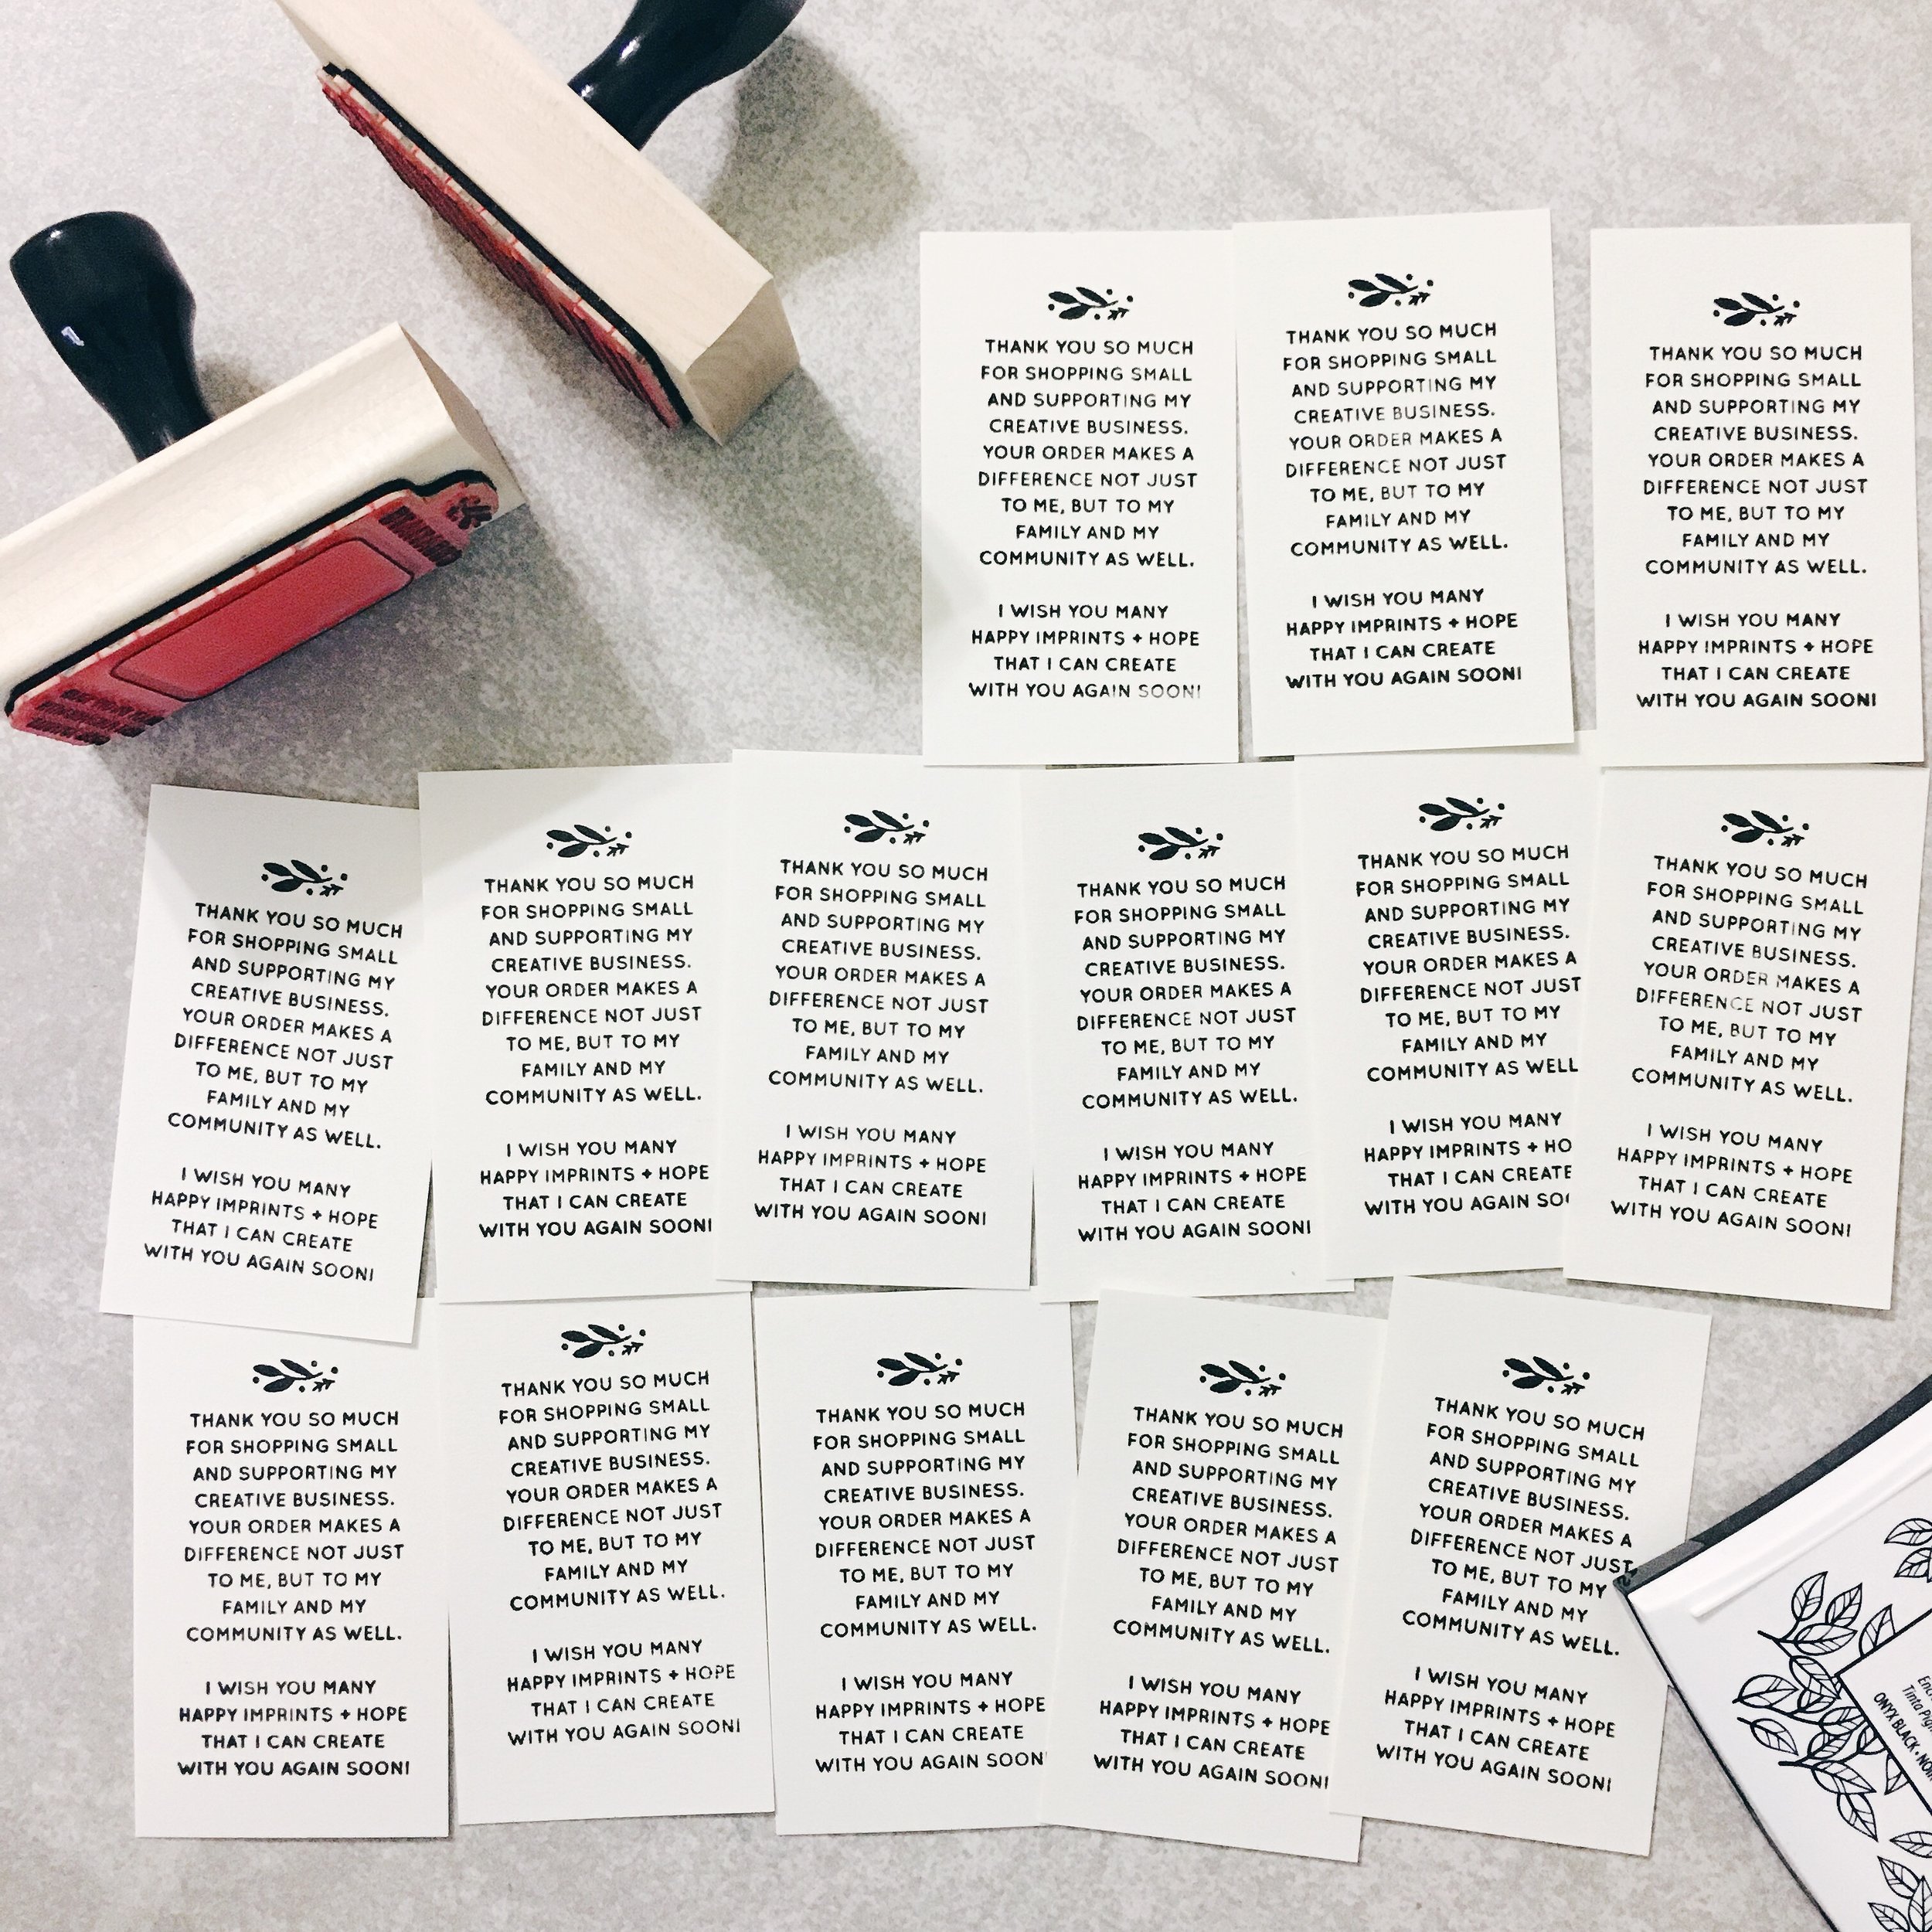 THANK YOU SO MUCH
FOR SHOPPING SMALL
AND SUPPORTING MY
CREATIVE BUSINESS.
YOUR ORDER MAKES A
DIFFERENCE NOT JUST
TO ME, BUT TO MY
FAMILY AND MY
COMMUNITY AS WELL.
I WISH YOU MANY
HAPPY IMPRINTS + HOPE
THAT I CAN CREATE
WITH YOU AGAIN SOON!
THANK YOU SO MUCH
FOR SHOPPING SMALL
AND SUPPORTING MY
CREATIVE BUSINESS.
YOUR ORDER MAKES A
DIFFERENCE NOT JUST
TO ME, BUT TO MY
FAMILY AND MY
COMMUNITY AS WELL.
I WISH YOU MANY
HAPPY IMPRINTS + HOPE
THAT I CAN CREATE
WITH YOU AGAIN SOON!
THANK YOU SO MUCH
FOR SHOPPING SMALL
AND SUPPORTING MY
CREATIVE BUSINESS.
YOUR ORDER MAKES A
DIFFERENCE NOT JUST
TO ME, BUT TO MY
FAMILY AND MY
COMMUNITY AS WELL.
I WISH YOU MANY
HAPPY IMPRINTS + HOPE
THAT I CAN CREATE
WITH YOU AGAIN SOON!
THANK YOU SO MUCH
FOR SHOPPING SMALL
AND SUPPORTING MY
CREATIVE BUSINESS.
YOUR ORDER MAKES A
DIFFERENCE NOT JUST
TO ME, BUT TO MY
FAMILY AND MY
COMMUNITY AS WELL.
I WISH YOU MANY
HAPPY IMPRINTS + HOPE
THAT I CAN CREATE
WITH YOU AGAIN SOON!
THANK YOU SO MUCH
FOR SHOPPING SMALL
AND SUPPORTING MY
CREATIVE BUSINESS.
YOUR ORDER MAKES A
DIFFERENCE NOT JUST
TO ME, BUT TO MY
FAMILY AND MY
COMMUNITY AS WELL.
I WISH YOU MANY
HAPPY IMPRINTS + HOPE
THAT I CAN CREATE
WITH YOU AGAIN SOON!
THANK YOU SO MUCH
FOR SHOPPING SMALL
AND SUPPORTING MY
CREATIVE BUSINESS.
YOUR ORDER MAKES A
DIFFERENCE NOT JUST
TO ME, BUT TO MY
FAMILY AND MY
COMMUNITY AS WELL.
I WISH YOU MANY
HAPPY IMPRINTS + HOPE
THAT I CAN CREATE
WITH YOU AGAIN SOON!
THANK YOU SO MUCH
FOR SHOPPING SMALL
AND SUPPORTING MY
CREATIVE BUSINESS.
YOUR ORDER MAKES A
DIFFERENCE NOT JUST
TO ME, BUT TO MY
FAMILY AND MY
COMMUNITY AS WELL.
I WISH YOU MANY
HAPPY IMPRINTS + HOPE
THAT I CAN CREATE
WITH YOU AGAIN SOON!
THANK YOU SO MUCH
FOR SHOPPING SMALL
AND SUPPORTING MY
CREATIVE BUSINESS.
YOUR ORDER MAKES A
DIFFERENCE NOT JUST
TO ME, BUT TO MY
FAMILY AND MY
COMMUNITY AS WELL
I WISH YOU MANY
HAPPY IMPRINTS + HO
THAT I CAN CREATE
WITH YOU AGAIN SO
THANK YOU SO MUCH
FOR SHOPPING SMALL
AND SUPPORTING MY
CREATIVE BUSINESS.
YOUR ORDER MAKES A
DIFFERENCE NOT JUST
TO ME, BUT TO MY
FAMILY AND MY
COMMUNITY AS WELL.
I WISH YOU MANY
HAPPY IMPRINTS + HOPE
THAT I CAN CREATE
WITH YOU AGAIN SOON!
THANK YOU SO MUCH
FOR SHOPPING SMALL
AND SUPPORTING MY
CREATIVE BUSINESS.
YOUR ORDER MAKES A
DIFFERENCE NOT JUST
TO ME, BUT TO MY
FAMILY AND MY
COMMUNITY AS WELL.
I WISH YOU MANY
HAPPY IMPRINTS + HOPE
THAT I CAN CREATE
WITH YOU AGAIN SOON!
THANK YOU SO MUCH
FOR SHOPPING SMALL
AND SUPPORTING MY
CREATIVE BUSINESS.
YOUR ORDER MAKES A
DIFFERENCE NOT JUST
TO ME, BUT TO MY
FAMILY AND MY
COMMUNITY AS WELL.
I WISH YOU MANY
HAPPY IMPRINTS + HOPE
THAT I CAN CREATE
WITH YOU AGAIN SOON!
THANK YOU SO MUCH
FOR SHOPPING SMALL
AND SUPPORTING MY
CREATIVE BUSINESS.
YOUR ORDER MAKES A
DIFFERENCE NOT JUST
TO ME, BUT TO MY
FAMILY AND MY
COMMUNITY AS WELL.
I WISH YOU MANY
HAPPY IMPRINTS + HOPE
THAT I CAN CREATE
WITH YOU AGAIN SOON
THANK YOU SO MUCH
FOR SHOPPING SMALL
AND SUPPORTING MY
CREATIVE BUSINESS.
YOUR ORDER MAKES A
DIFFERENCE NOT JUST
TO ME, BUT TO MY
FAMILY AND MY
COMMUNITY AS WELL.
I WISH YOU MANY
HAPPY IMPRINTS + HOPE
THAT I CAN CREATE
WITH YOU AGAIN SOON!
THANK YOU SO MUCH
FOR SHOPPING SMALL
AND SUPPORTING MY
CREATIVE BUSINESS.
YOUR ORDER MAKES A
DIFFERENCE NOT JUST
TO ME, BUT TO MY
FAMILY AND MY
COMMUNITY AS WELL.
I WISH YOU MANY
HAPPY IMPRINTS + HOPE
THAT I CAN CREATE
WITH YOU AGAIN SOON!
Tinta
ONYX BLACK